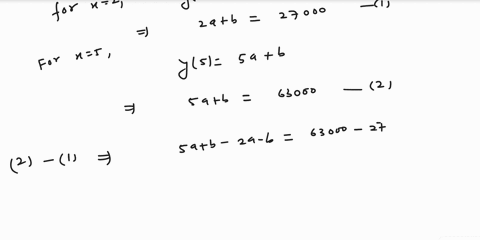 for x=2, y
⇒ 2a+b = 27000 —(1)
For x=5, y(5) = 5a+b
⇒ 5a+b = 63000 —(2)
(2) - (1) ⇒ 5a+b - 2a-b = 63000 - 27